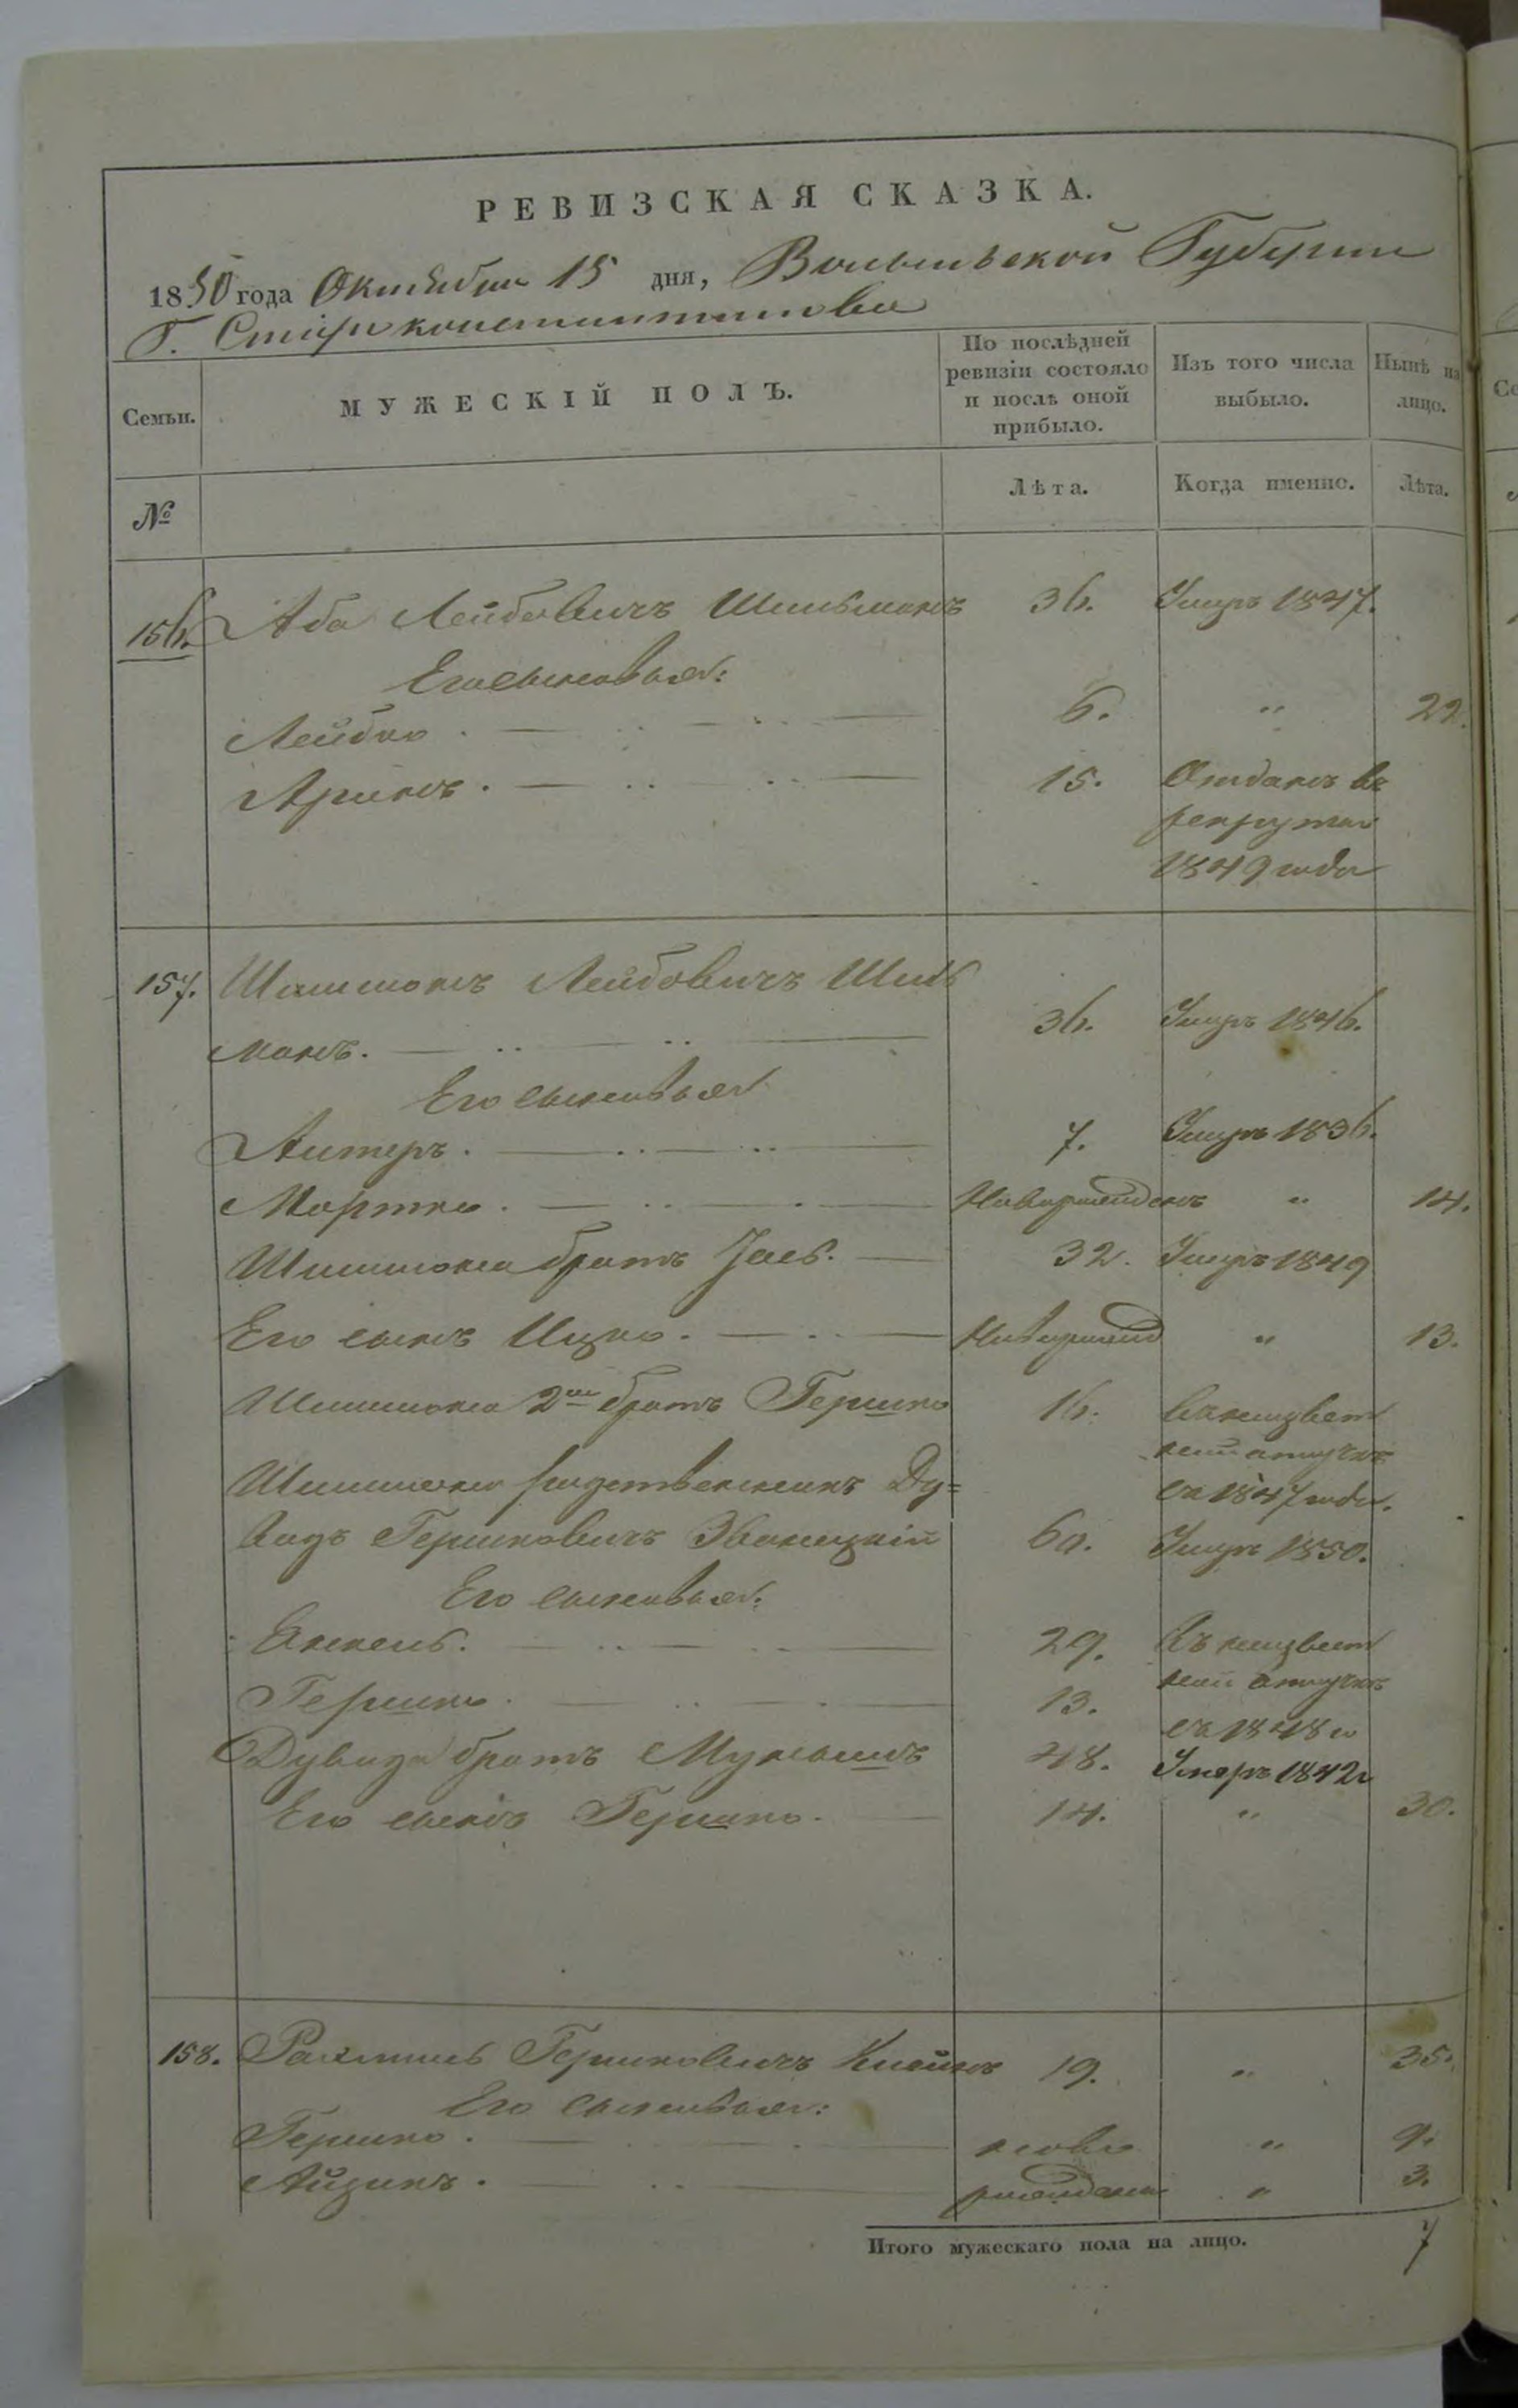 РЕВИЗСКАЯ СКАЗКА.
1850 года Октября 15 дня, Волынской Губернии
Г. Староконстантинова
Семьи.
МУЖЕСКІЙ ПОЛЪ.
По послѣдней ревизіи состояло и послѣ оной прибыло.
Изъ того числа выбыло.
Нынѣ на лицо.
№
Лѣта.
Когда именно.
Лѣта.
156. Аба Лейбовичъ Шильманъ 36. Умръ 1847.
Его сыновья:
Лейбко 6. " 22.
Аронъ. 15. Отданъ въ
рекруты
1849 года
157. Шимшонъ Лейбовичъ Шиль
манъ. 36. Умръ 1846.
Его сыновья
Алтеръ. 7. Умръ 1836.
Мортко. Новорожденъ " 14.
Шимшона братъ 32. Умръ 1849
Его сынъ Ицко. Новорожд " 13.
Шимшона 2й братъ Гершко 16. въ неизвест
ной отлучке
съ 1847 года.
Шимшона родственникъ Ду=
видъ Гершковичъ Званецкій 60. Умръ 1850.
Его сыновья:
29. Въ неизвест
ной отлучке
Гершко. 13.
съ 1848 г
Дувида братъ 48. Умеръ 1842г
Его сынъ Гершко. 14. " 30.
158. Рахмиль Гершковичъ 19. " 35.
Его сыновья:
Гершко. ново " 9.
Айзикъ. рождены " 3.
Итого мужескаго пола на лицо. 7